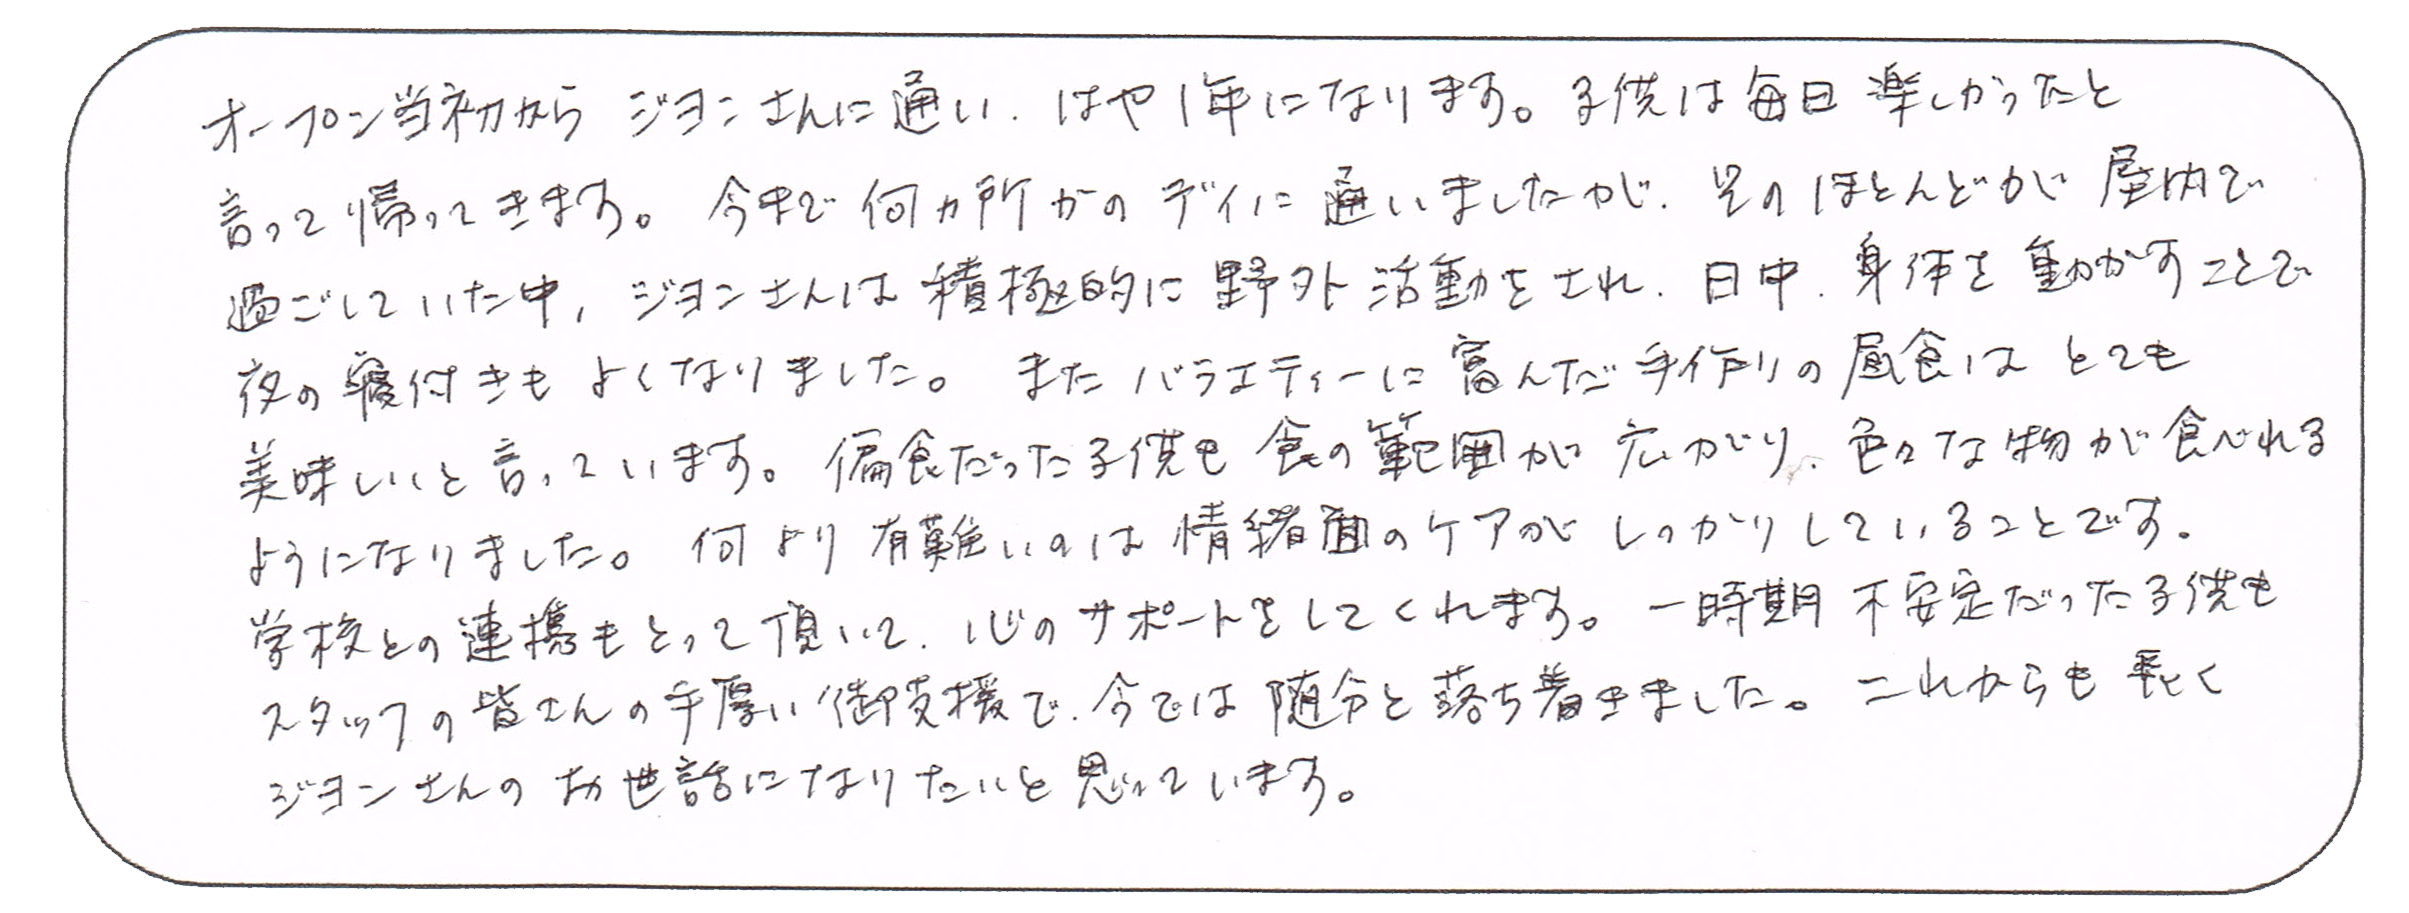 オープン当初から ジョンさんに通い、はや1年になります。子供は毎日楽しかったと
言って帰ってきます。今まで何ヵ所かのデイに通いましたが、そのほとんどが屋内で
過ごしていた中、ジョンさんは積極的に野外活動をされ、日中、身体を動かすことで
夜の寝付きもよくなりました。またバラエティーに富んだ手作りの昼食はとても
美味しいと言っています。偏食だった子供も食の範囲が広がり、色々な物が食べれる
ようになりました。何より有難いのは情緒面のケアがしっかりしていることです。
学校との連携もとって頂いて、心のサポートをしてくれます。一時期不安定だった子供も
スタッフの皆さんの手厚い御支援で、今では随分と落ち着きました。これからも長く
ジョンさんのお世話になりたいと思っています。